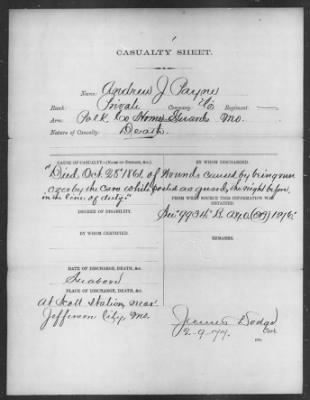 CASUALTY SHEET.
Name: Andrew J. Payne
Rank: Private Company: "C" Regiment:
Arm: Polk Co Home Guards Mo.
Nature of Casualty: Death.
CAUSE OF CASUALTY—(NAME OF DISEASE, &c.)
"Died Oct. 25" 1861 of Wounds caused by being run
over by the Cars while posted as guard, the night before,
in the line of duty."
DEGREE OF DISABILITY.
BY WHOM CERTIFIED.
DATE OF DISCHARGE, DEATH, &c.
See above
PLACE OF DISCHARGE, DEATH, &c.
At Scott Station near
Jefferson City Mo.
BY WHOM DISCHARGED.
FROM WHAT SOURCE THIS INFORMATION WAS
OBTAINED.
REMARKS.
Dodge
Clerk.